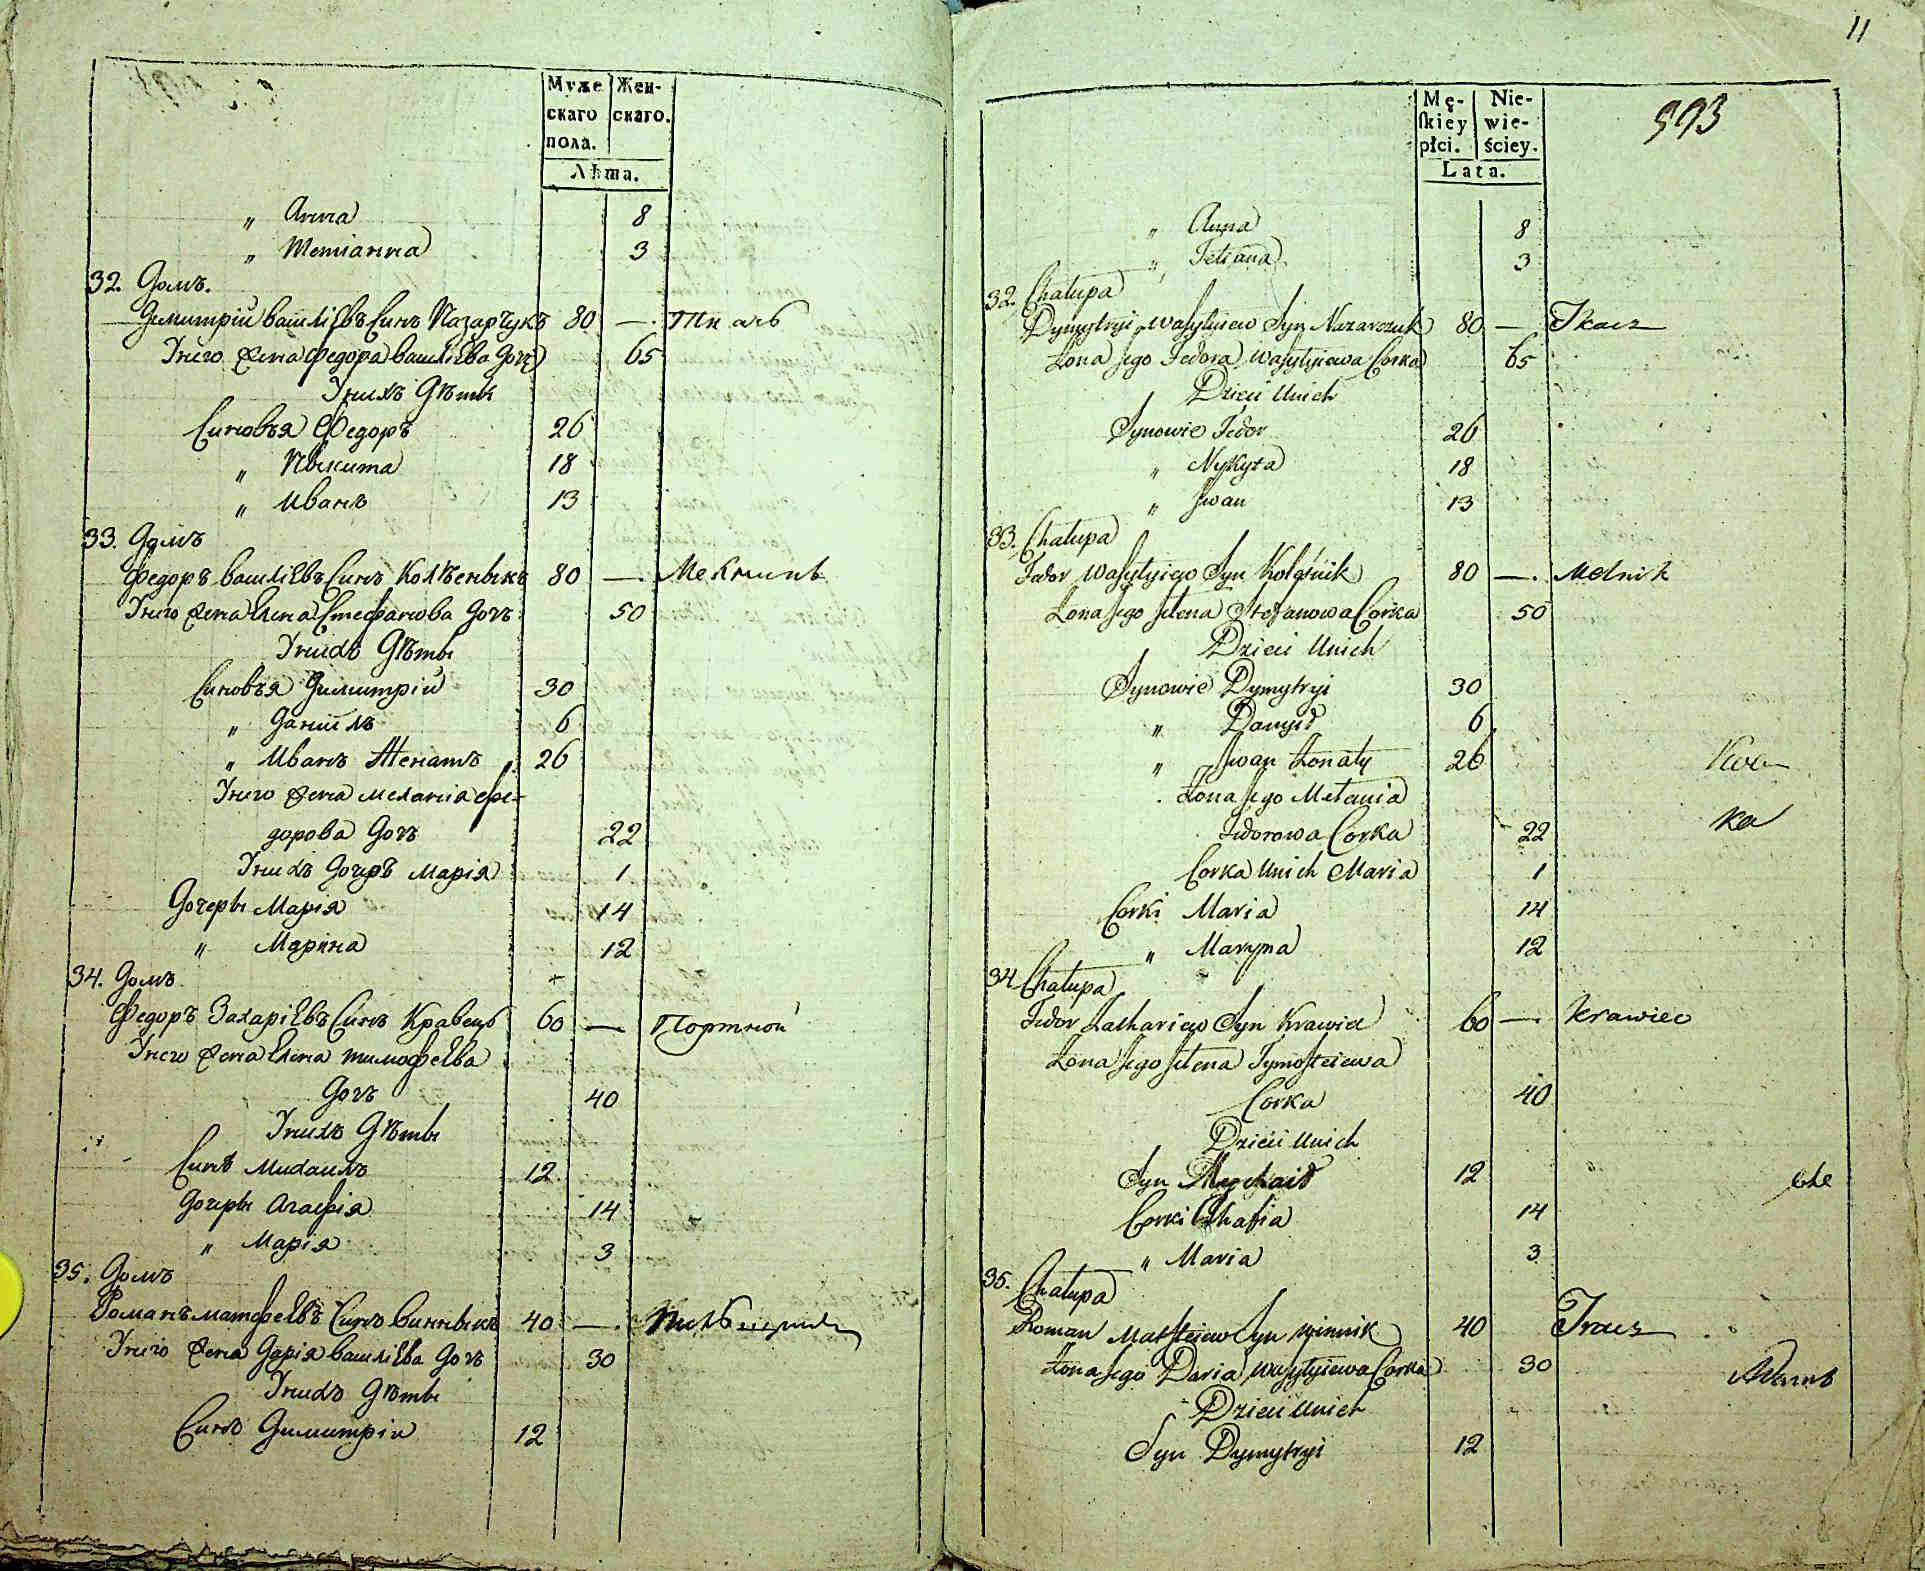 Муже
скаго
пола.
Жен-
скаго.
Лѣта.
„ Анна 8
„ Тетианна 3
32. Домъ.
Димитрий Василіевъ Синъ Назарчукъ 80 — Ткачь
У него жена Федора Василіева Дочь 65
У нихъ Дѣты
Синовъя Федоръ 26
„ Ныкита 18
„ Иванъ 13
33. Домъ
Федоръ Василіевъ Синъ Колѣсныкъ 80 — Мельникъ
У него жена Елена Стефанова Дочъ 50
У нихъ Дѣты
Синовъя Димитрій 30
„ Даниилъ 6
„ Иванъ Женатъ 26
У него жена Меланія Фе-
дорова Дочъ 22
У нихъ Дочеръ Марія 1
Дочеры Марія 14
„ Марина 12
34. Домъ
Федоръ Захаріевъ Синъ Кравець 60 — Портной
У него жена Елена Тимофеева
Дочъ 40
У нихъ Дѣты
Синъ Михаилъ 12
Дочеры Агафія 14
„ Марія 3
35. Домъ
Романъ Матфеевъ Синъ Винныкъ 40 —
У него жена Дарія Василіева Дочъ 30
У нихъ Дѣты
Синъ Димитрій 12
11
593
Mę-
skiey
płci.
Nie-
wie-
ściey.
Lata.
„ Anna 8
„ Tetiana 3
32. Chałupa
Dymytryi Wasylyiew Syn Nazarczuk 80 — Tkacz
Żona Jego Fedora Wasylyiewa Corka 65
Dzieci Unich
Synowie Fedor 26
„ Nykyta 18
„ Jwan 13
33. Chałupa
Fedor Wasylyiego Syn Kołeśnik 80 — Melnik
Żona Jego Jełena Stefanowa Corka 50
Dzieci Unich
Synowie Dymytryi 30
„ Danyło 6
„ Jwan Żonaty 26
Żona Jego Mełania
Fedorowa Corka 22
Corka Unich Maria 1
Corki Maria 14
„ Maryna 12
34 Chałupa
Fedor Zachariew Syn Krawiec 60 — Krawiec
Żona Jego Jełena Tymofteiewa
Corka 40
Dzieci Unich
Syn Mychaiło 12
Corki Ahafia 14
„ Maria 3
35. Chałupa
Roman Matfteiew Syn Winnik 40 Tracz
Żona Jego Daria Wasylyiewa Corka 30
Dzieci Unich
Syn Dymytryi 12